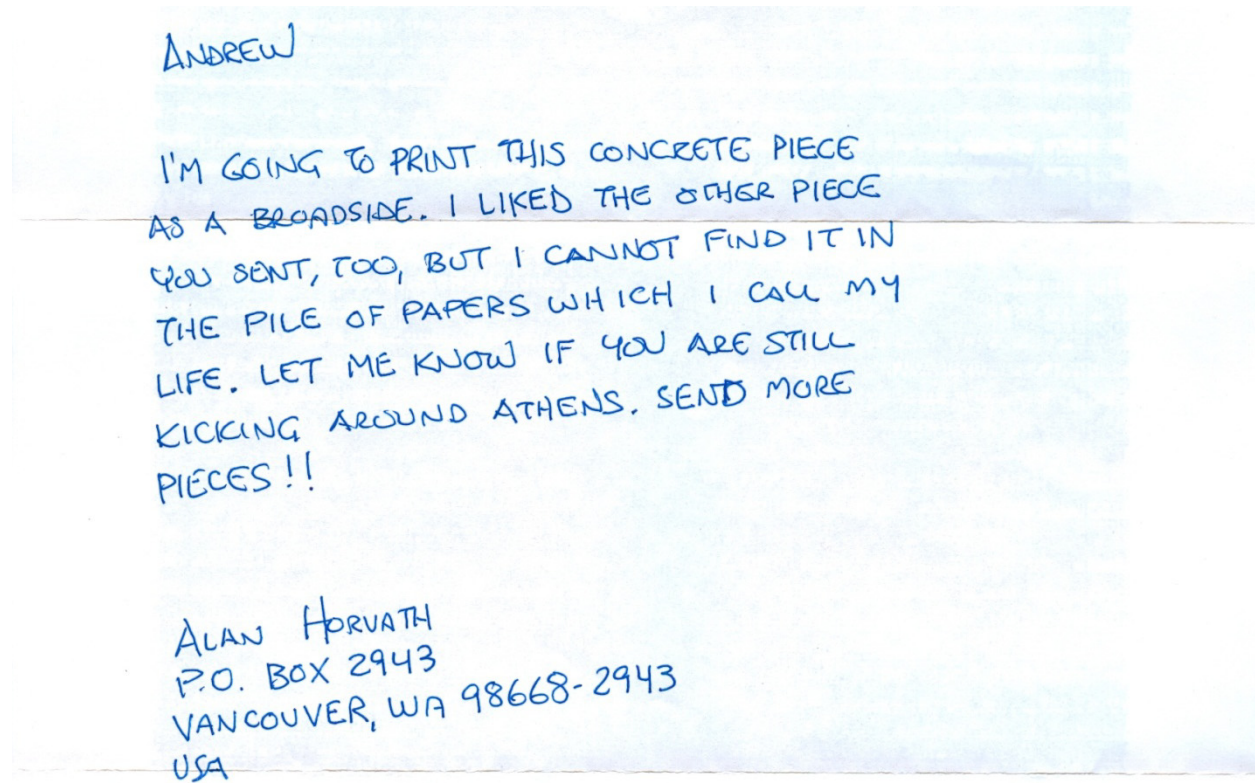 ANDREW
I'M GOING TO PRINT THIS CONCRETE PIECE
AS A BROADSIDE. I LIKED THE OTHER PIECE
YOU SENT, TOO, BUT I CANNOT FIND IT IN
THE PILE OF PAPERS WHICH I CALL MY
LIFE. LET ME KNOW IF YOU ARE STILL
KICKING AROUND ATHENS. SEND MORE
PIECES!!
ALAN HORVATH
P.O. BOX 2943
VANCOUVER, WA 98668-2943
USA